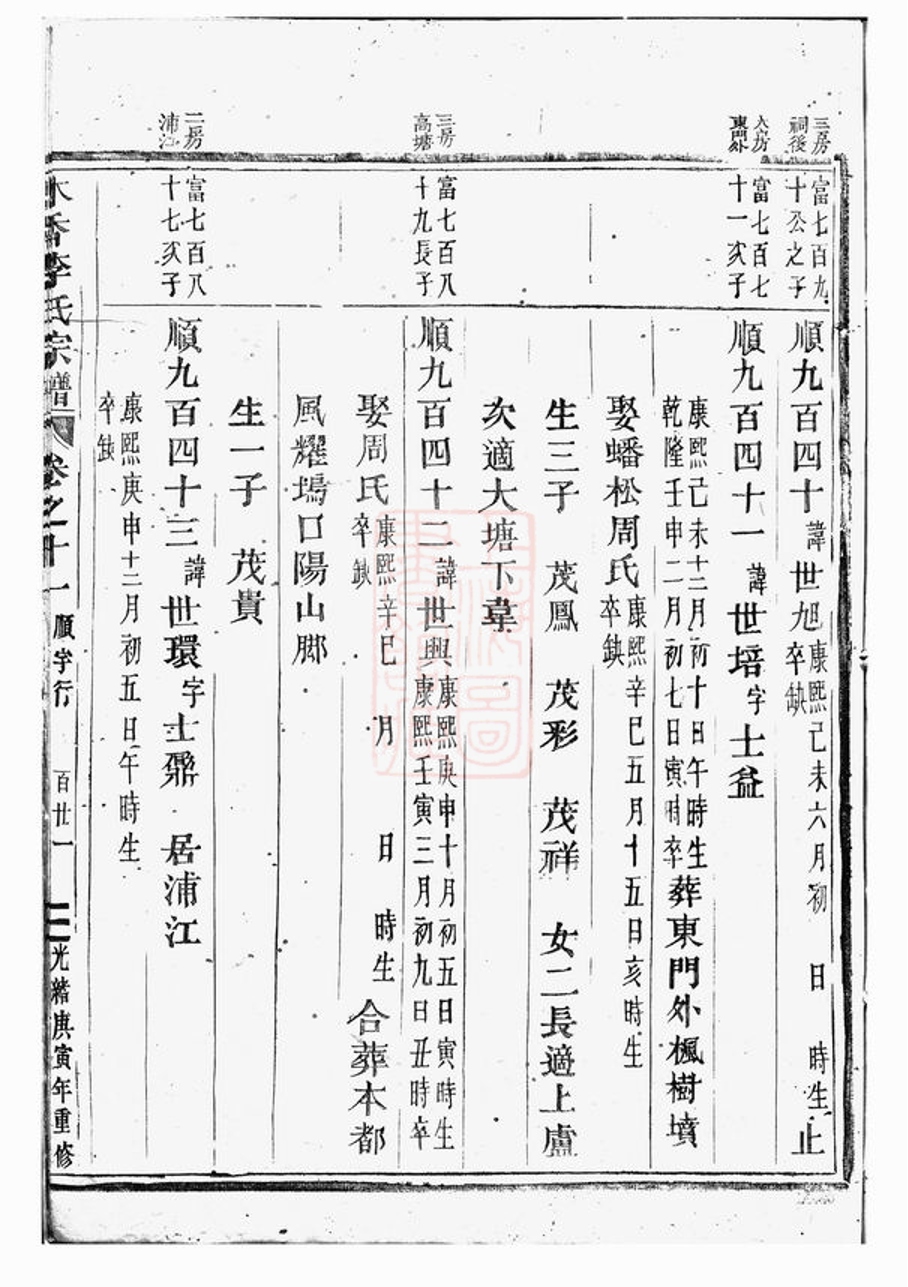 三房
祠後
富七百九
十公之子
順九百四十 諱世旭 康熙己未六月初 日 時生 止
卒缺
大房
東門外
富七百七
十一次子
順九百四十一 諱世培 字士益
康熙己未十二月初十日午時生
乾隆壬申二月初七日寅時卒 葬東門外楓樹墳
娶蟠松周氏 康熙辛巳五月十五日亥時生
卒缺
生三子 茂鳳 茂彩 茂祥 女二長適上盧
次適大塘下韋
三房
高塘
富七百八
十九長子
順九百四十二 諱世興 康熙庚申十月初五日寅時生
康熙壬寅三月初九日丑時卒
娶周氏 康熙辛巳 月 日 時生 合葬本都
卒缺
風耀塢口陽山脚
生一子 茂貴
二房
浦江
富七百八
十七次子
順九百四十三 諱世環 字士鼐 居浦江
康熙庚申十二月初五日午時生
卒缺
水香李氏宗譜 卷之十一 順字行 百廿一 光緒庚寅年重修